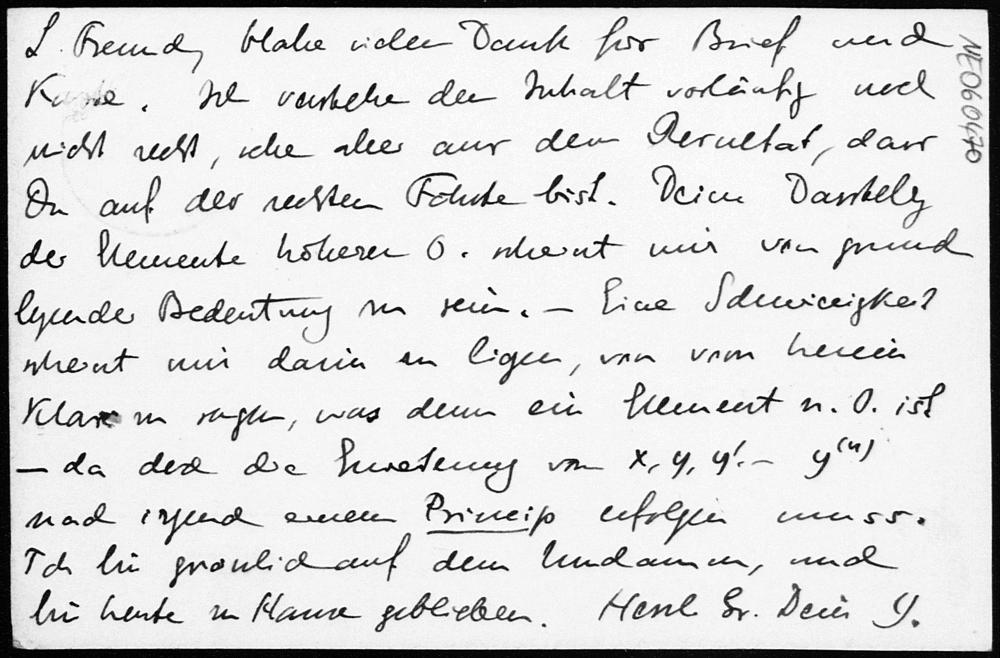 L. Freund, habe vielen Dank für Brief und
Karte. Ich verstehe den Inhalt vorläufig noch
nicht recht, sehe aber aus dem Resultat, dass
Du auf der rechten Fährte bist. Deine Darstellg
der Elemente höherer O. scheint mir von grund
legender Bedeutung zu sein. — Eine Schwierigkeit
scheint mir darin zu liegen, von vorn herein
Klar zu sagen, was denn ein Element n. O. ist
— da doch die Erweiterung von x, y, y' .– y⁽ⁿ⁾
nach irgend einem Princip erfolgen muss.
Ich bin greulich auf dem Hund, und
bin heute zu Hause geblieben. Herzl Gr. Dein Y.
NE060470